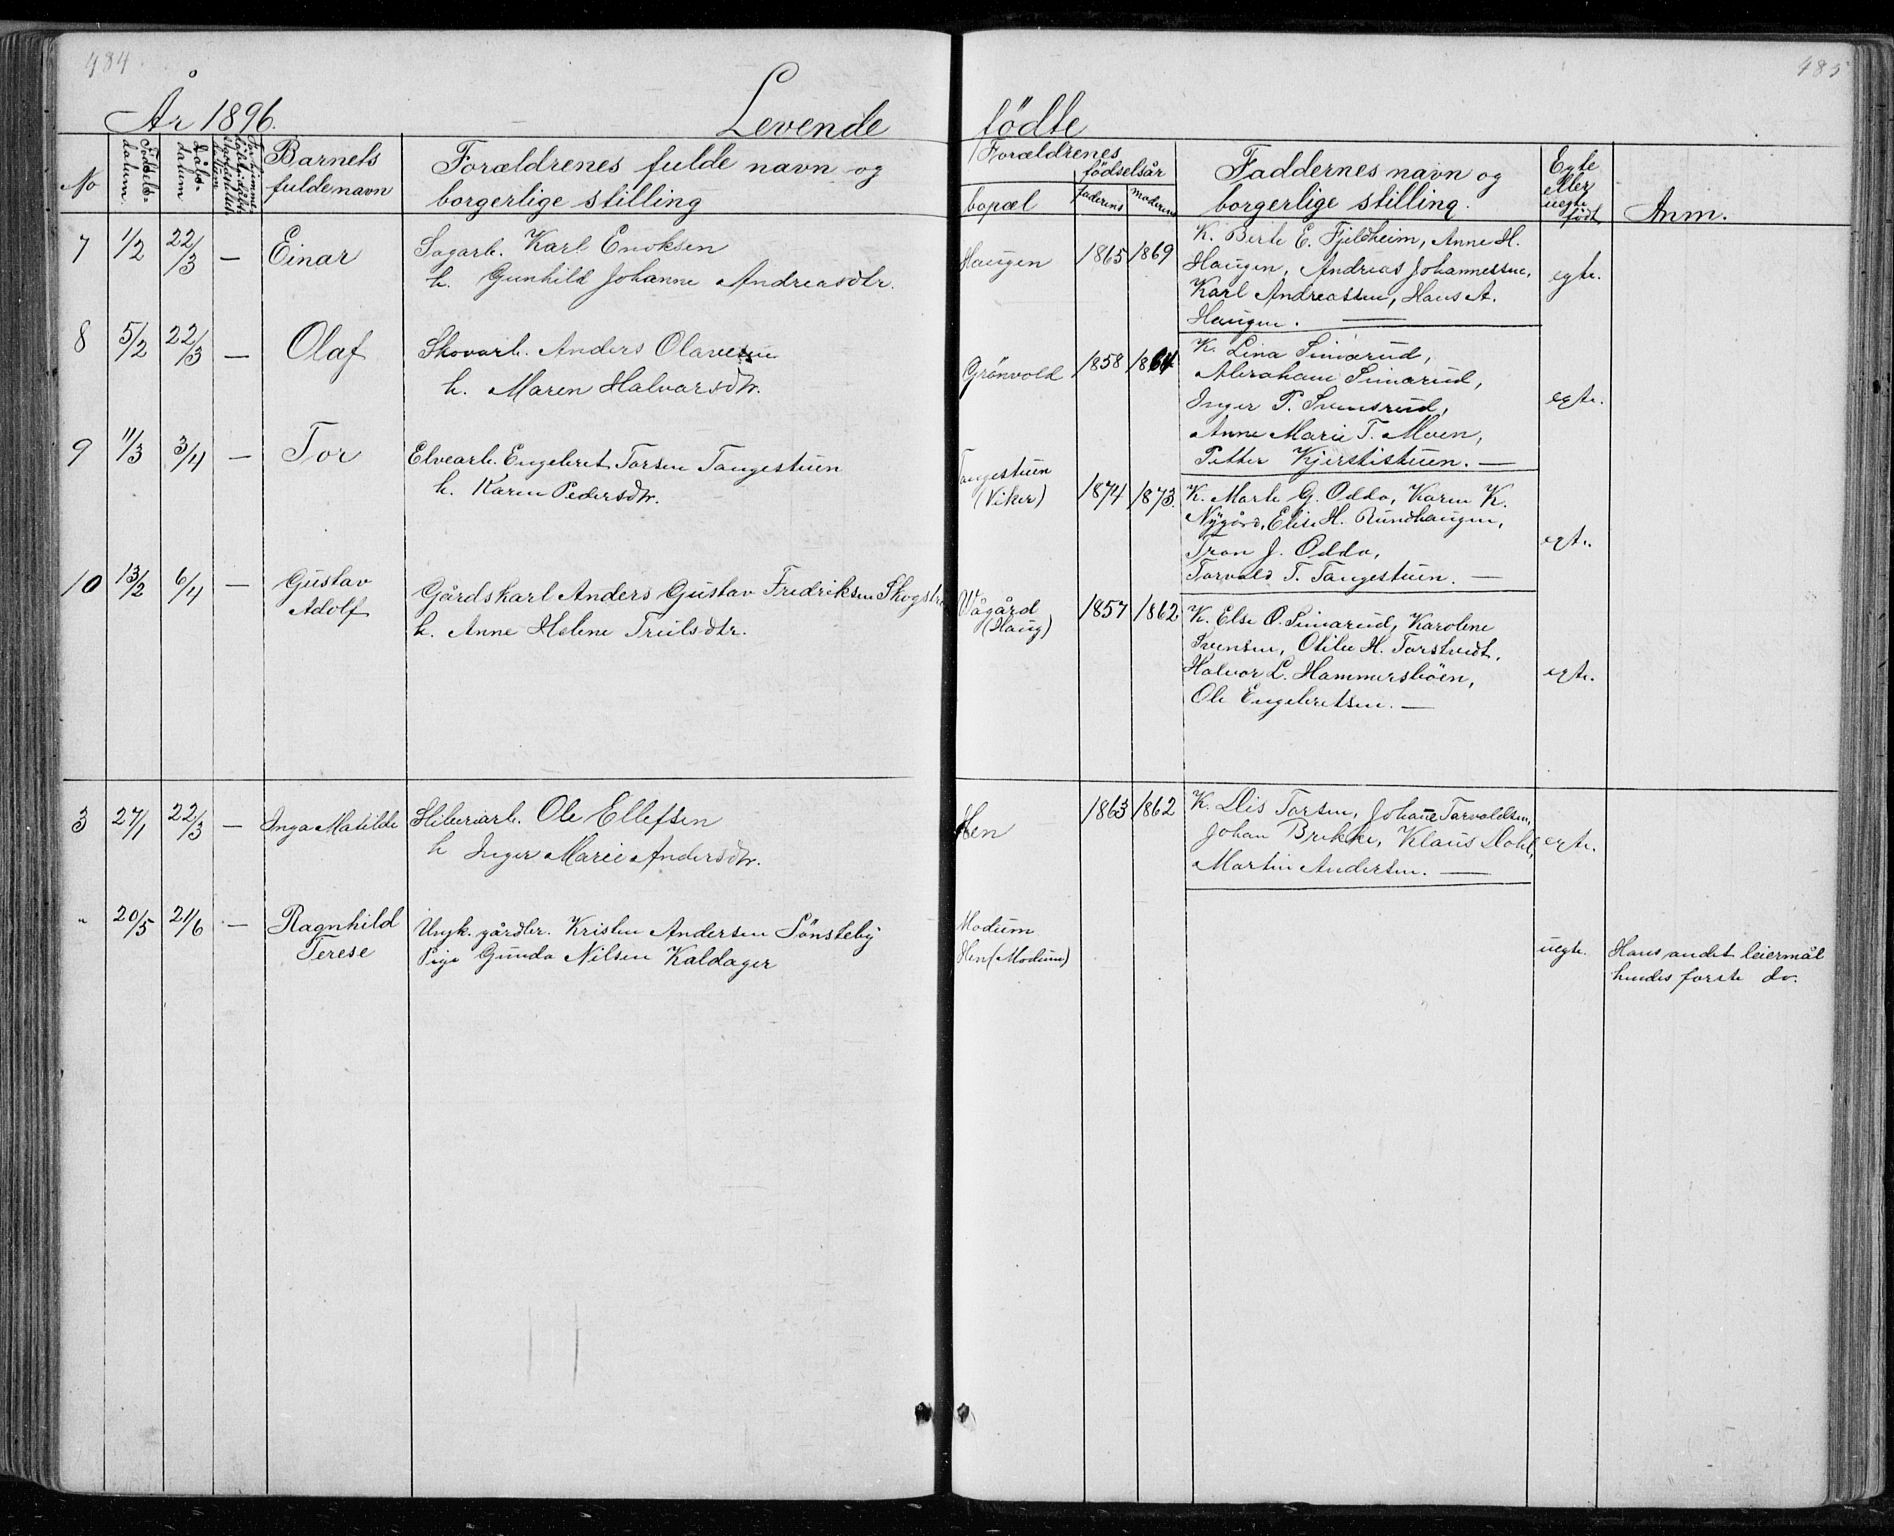 484
485
År 1896.
Levende
födte
No
Födsels-
datum.
Dåbs-
datum
Barnets
fulde navn
Forældrenes fulde navn og
borgerlige stilling
Forældrenes
bopæl
födselsår
faderens
moderens
Faddernes navn og
borgerlige stilling.
Egte
eller
uegte
födt
Anm.
7 1/2 22/3 — Einar
Sagarb. Karl Enoksen
h. Gunhild Johanne Andreasdtr.
Haugen 1865 1869
K. Berte E. Fjeldheim, Anne H.
Haugen, Andreas Johannessen,
Karl Andreassen, Hans A.
Haugen. —
egte.
8 5/2 22/3 — Olaf
Skovarb. Anders Olavesen
h. Maren Halvarsdtr.
Grönvold 1858 1864
K. Lina Simarud,
Abraham Simarud,
Inger P. Svensrud,
Anne Marie T. Moen,
Petter Kjerstistuen. —
egte.
9 11/3 3/4 — Tor
Elvearb. Engebret Torsen Tangestuen
h. Karen Pedersdtr.
Tangestuen
(Viker)
1874 1873.
K. Marte G. Oddo, Karen K.
Nygård, Elise H. Rundhaugen,
Tron J. Oddo,
Torvald T. Tangestuen. —
egte.
10 13/2 6/4 — Gustav
Adolf
Gårdskarl Anders Gustav Fredriksen
h. Anne Helene Trulsdtr.
Vågård
(Haug)
1857 1862
K. Else O. Simarud, Karolene
Svensen, Otilie H. Torstvedt,
Halvor L. Hammersböen,
Ole Engebretsen. —
egte.
3 27/1 22/3 — Inga Matilde
Sliberiarb. Ole Ellefsen
h Inger Marie Andersdtr.
Hen 1863 1862
K. Dis Torsen, Johane Torvaldsen,
Johan Brekke, Klaus Dohl,
Martin Andersen. —
egte.
" 20/5 21/6 — Ragnhild
Terese
Ungk. gårdbr. Kristen Andersen Sönsteby
Pige Gunda Nilsen Kaldager
Modum
Hen (Modum)
uegte.
Hans andet leiermål
hendes förste do.